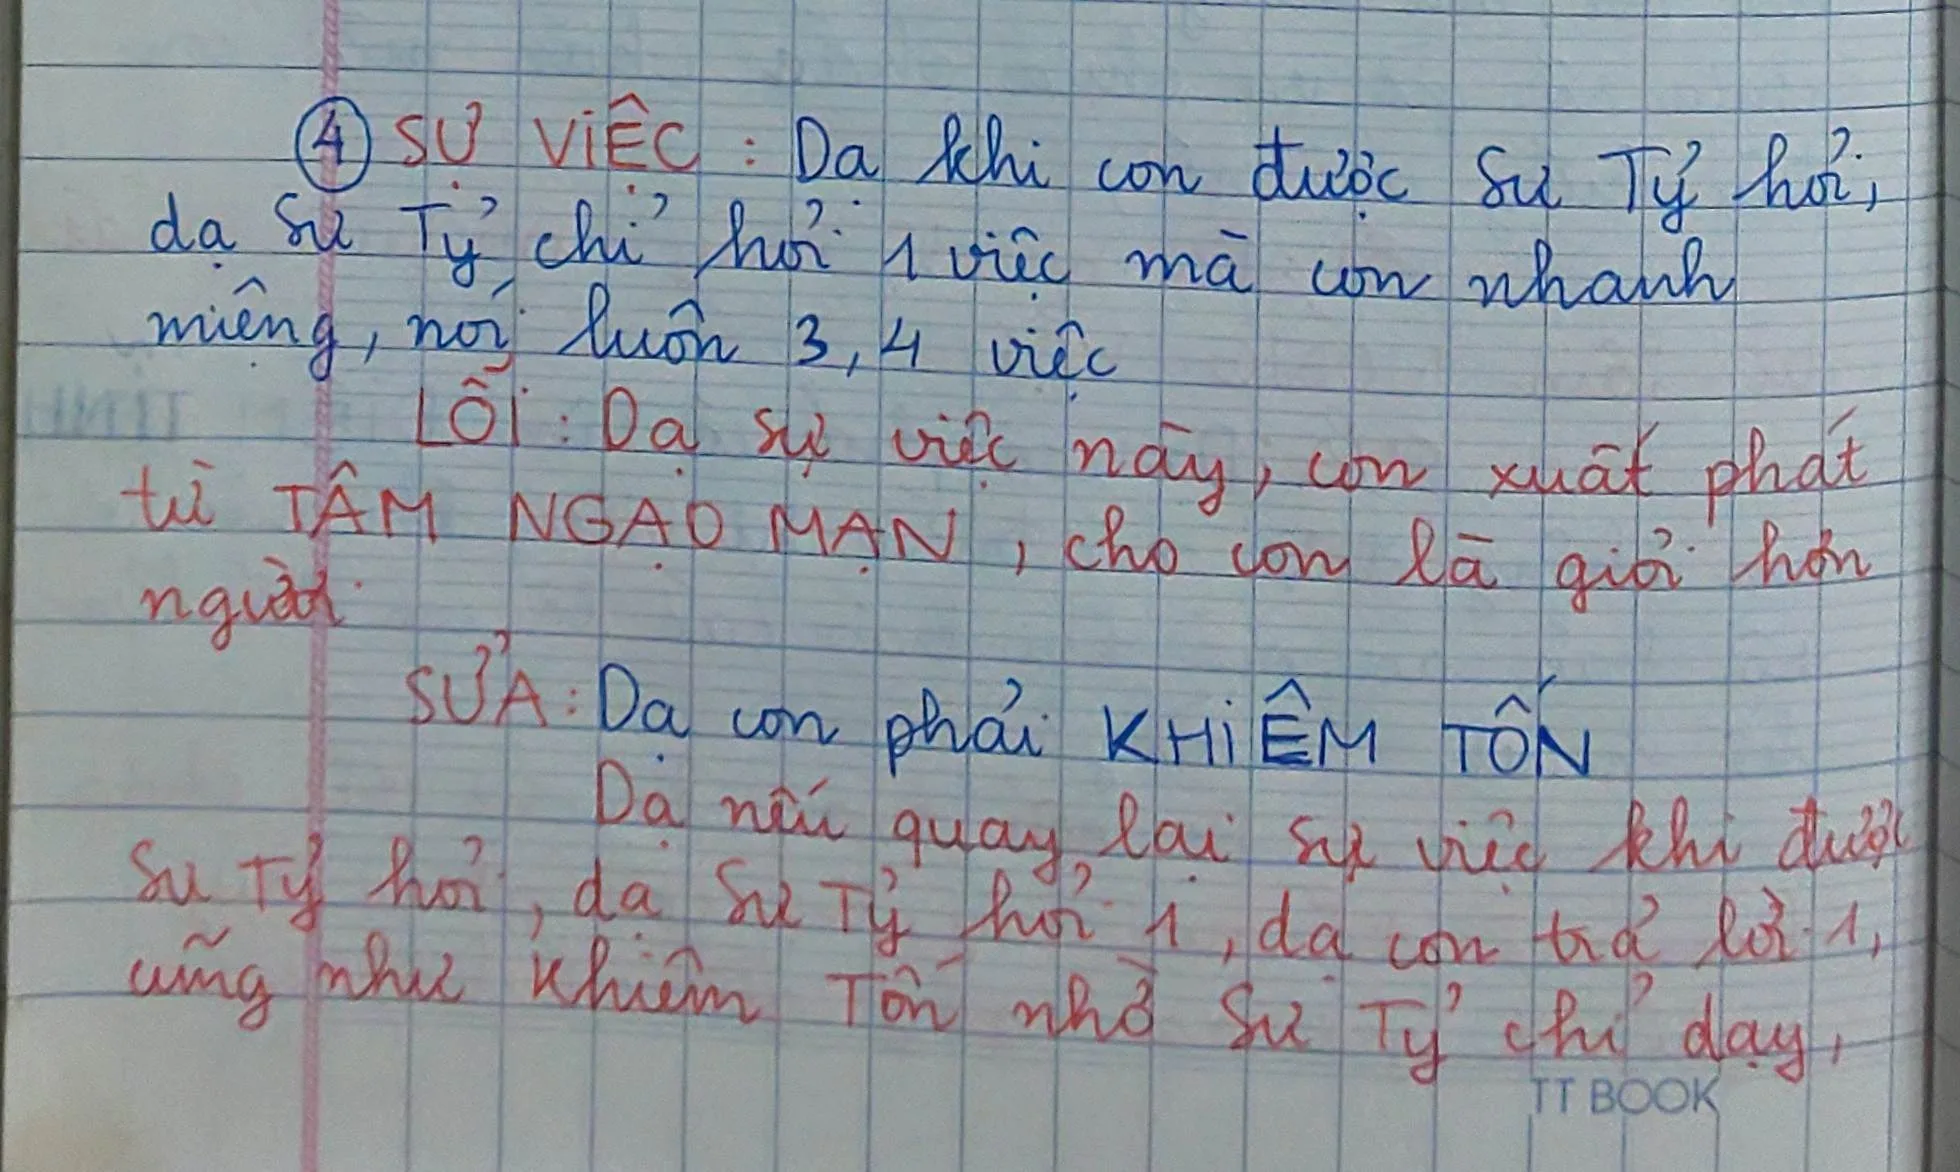 ④ SỰ VIỆC : Dạ khi con được Sư Tỷ hỏi,
dạ Sư Tỷ chỉ hỏi 1 việc mà con nhanh
miệng, nói luôn 3, 4 việc
LỖI : Dạ sự việc này, con xuất phát
từ TÂM NGẠO MẠN, cho con là giỏi hơn
người
SỬA : Dạ con phải KHIÊM TỐN
Dạ nếu quay lại sự việc khi được
Sư Tỷ hỏi, dạ Sư Tỷ hỏi 1, dạ con trả lời 1,
cũng như Khiêm Tốn nhờ Sư Tỷ chỉ dạy,
TT BOOK